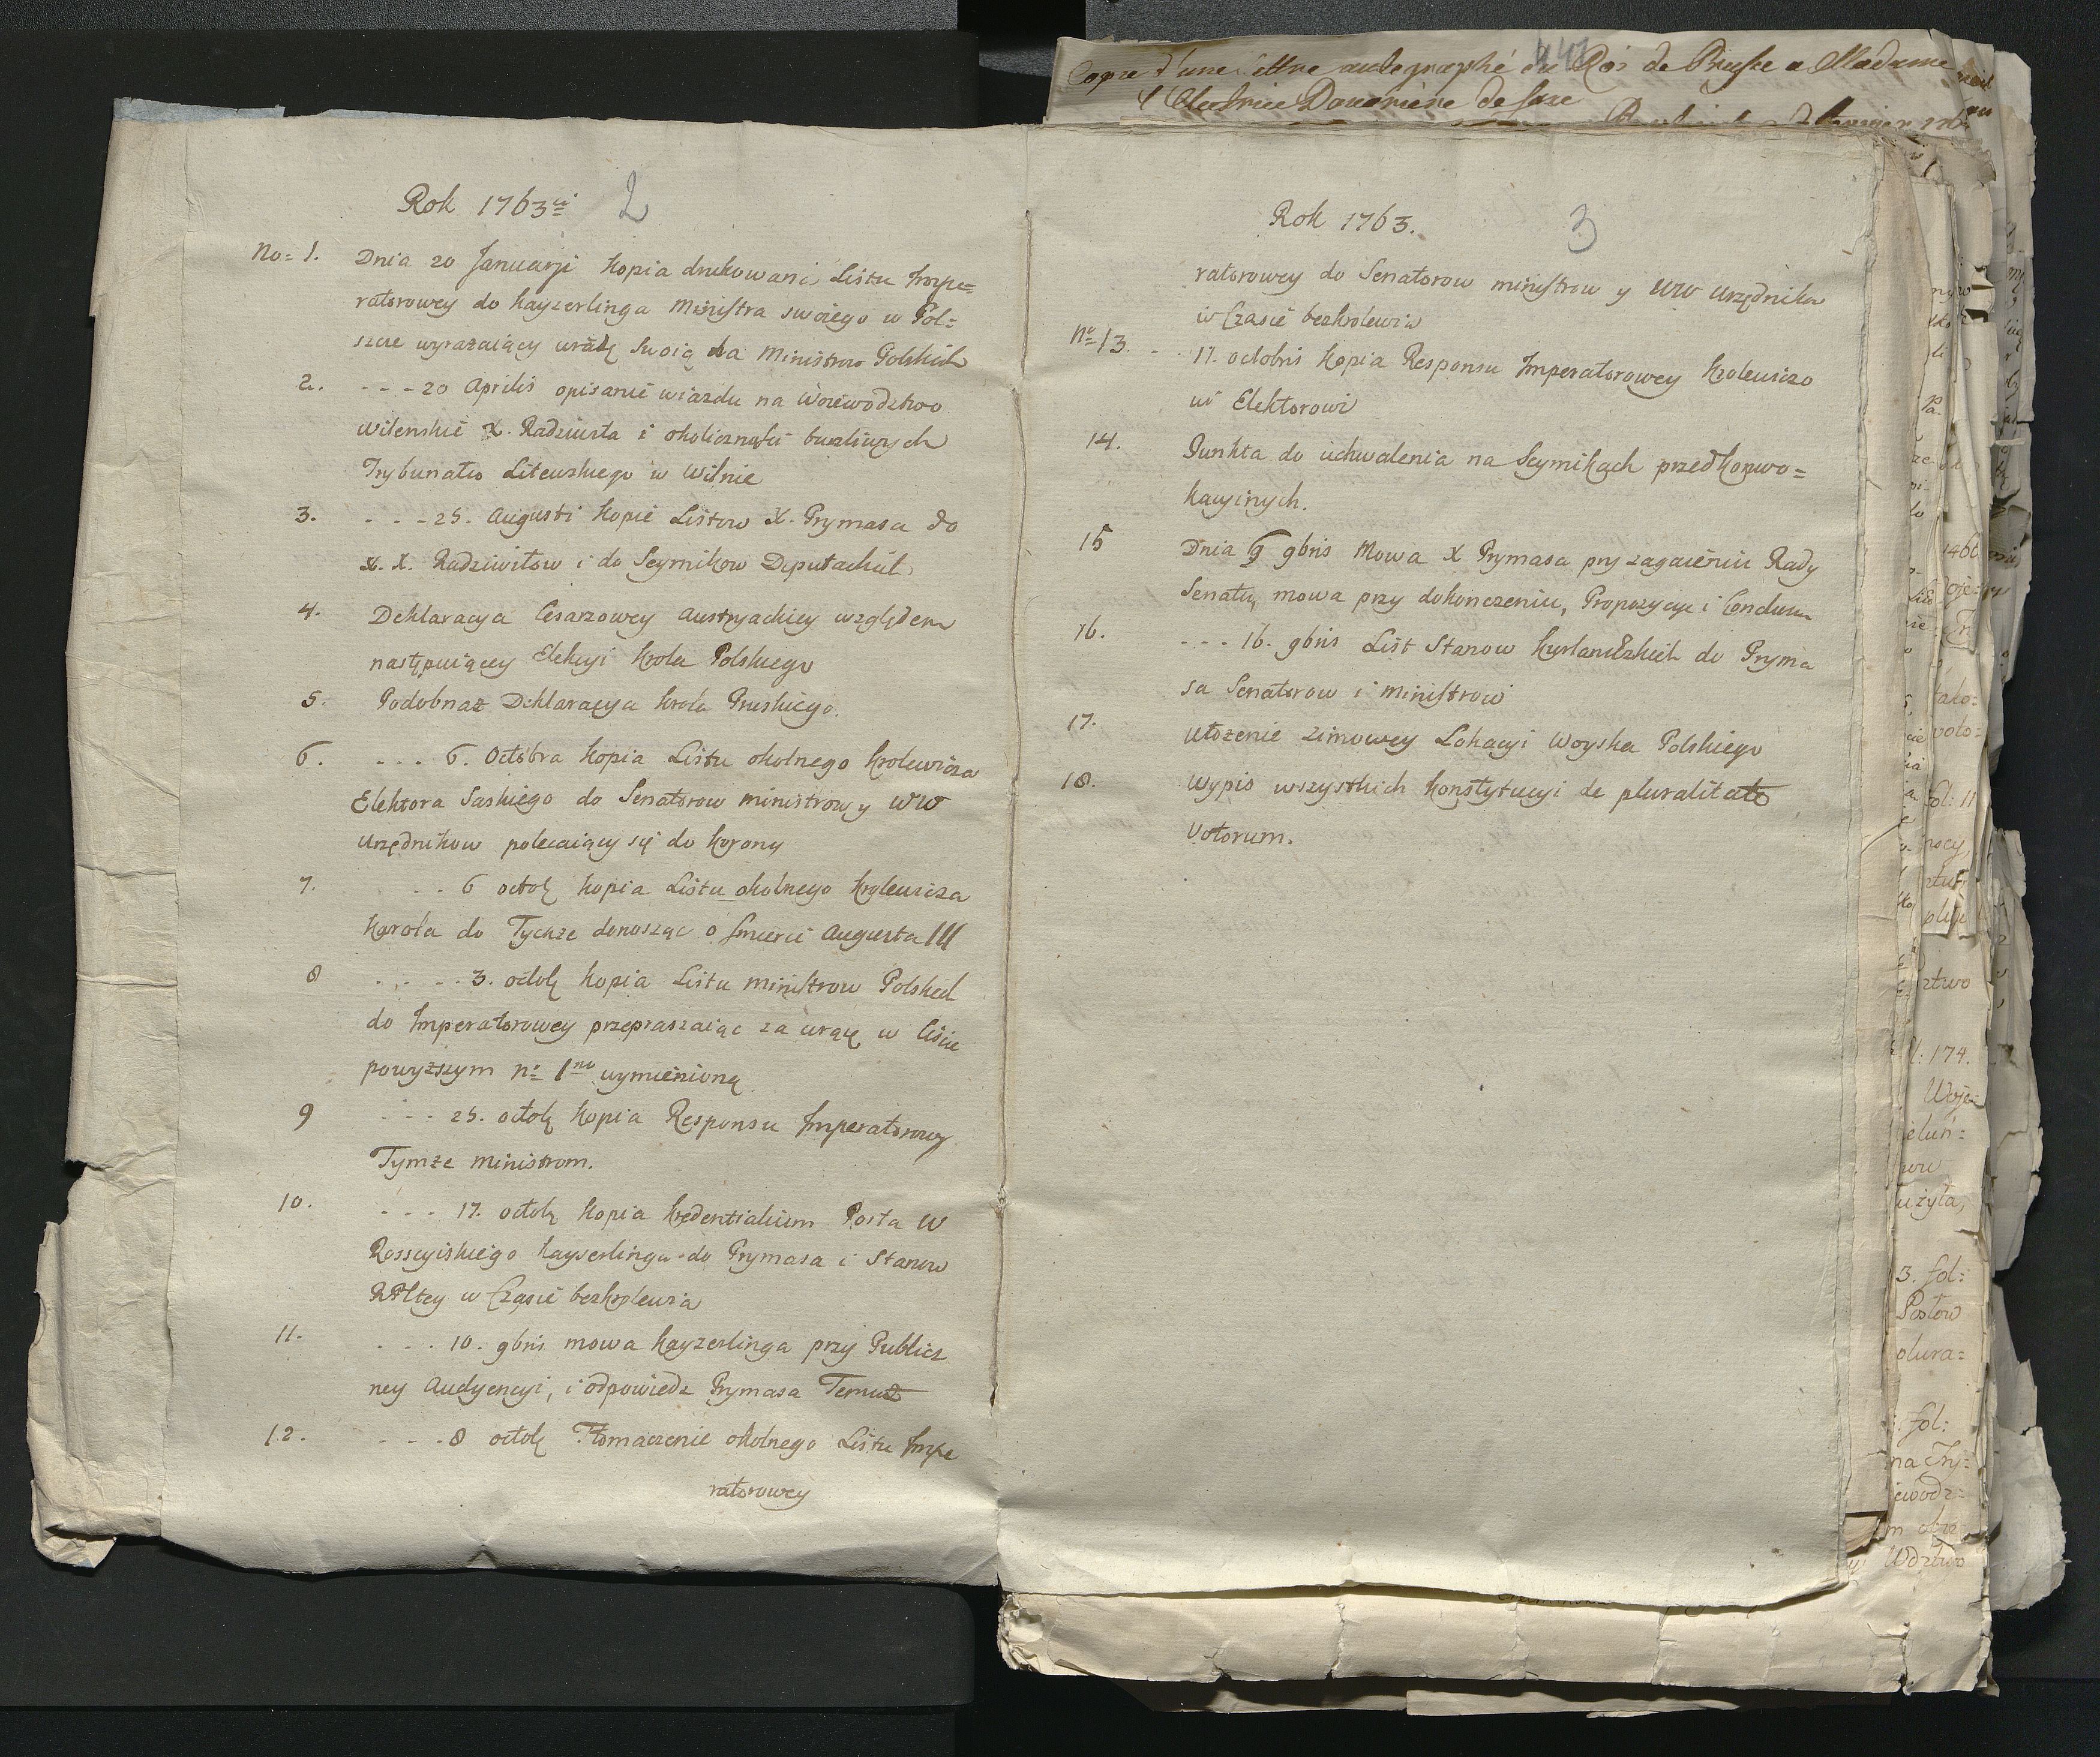 Copie d'une lettre autographé du Roi de Prusse a Madame
l'Electrice Douariere de Saxe
Rok 1763ci 2
No= 1. Dnia 20 Januarji kopia drukowani Listu Impe=
ratorowey do Kayzerlinga Ministra swoiego w Pol=
szcze wyrazaiący urazę swoią na Ministrow Polskich
2. - - - 20 Aprilis opisanie wiazdu na Woiewodztwo
wilenskie X. Radziwiła i okolicznosci burzliwych
Trybunału Litewskiego w Wilnie
3. - - - 25. Augusti kopie Listow X. Prymasa do
X. X. Radziwiłow i do Seymikow Deputackich
4. Deklaracya Cesarzowey Austryackiey względem
następuiącey Elekcyi Krola Polskiego
5. Podobnaż Deklaracya Krola Pruskiego.
6. - - - 6. Octobra kopia Listu okolnego Krolewicza
Elektora Saskiego do Senatorow ministrow y WW
urzędnikow polecaiący się do korony
7. - - 6 octob kopia Listu okolnego Krolewicza
Karola do Tychze donosząc o smierci Augusta III
8 - - - - 3. octob kopia Listu ministrow Polskich
do Imperatorowey przepraszaiąc za urazę w liście
powyższym no 1mo wymienioną
9 - - - 25. octob kopia Responsu Imperatorowy
Tymże ministrom.
10. - - - 17. octob kopia kredentialium Posła W
Rossyiskiego Kayserlinga do Prymasa i Stanow
RPltey w Czasie bezkrolewia
11. - - - 10. 9bris mowa Kayzerlinga przy Publicz
ney Audyencyi, i odpowiedz Prymasa Temuż
12. - - - 8 octob Tłomaczenie okolnego Listu Impe
ratorowey
Rok 1763. 3
ratorowey do Senatorow ministrow y WW urzędnikow
w Czasie bezkrolewia
No 13. - - 17. octobris kopia Responsu Imperatorowey Krolewiczo
wi Elektorowi
14. Punkta do uchwalenia na Seymikach przedkonwo=
kacyinych.
15 Dnia 9bris Mowa X Prymasa przy zagaieniu Rady
Senatu, mowa przy dokonczeniu, Propozycye i Conclusum
16. - - - 16. 9bris List Stanow Kurlandzkich do Pryma
sa Senatorow i ministrow
17. Ułożenie zimowey Lokacyi Woyska Polskiego
18. Wypis wszystkich konstytucyi de pluralitate
Votorum.